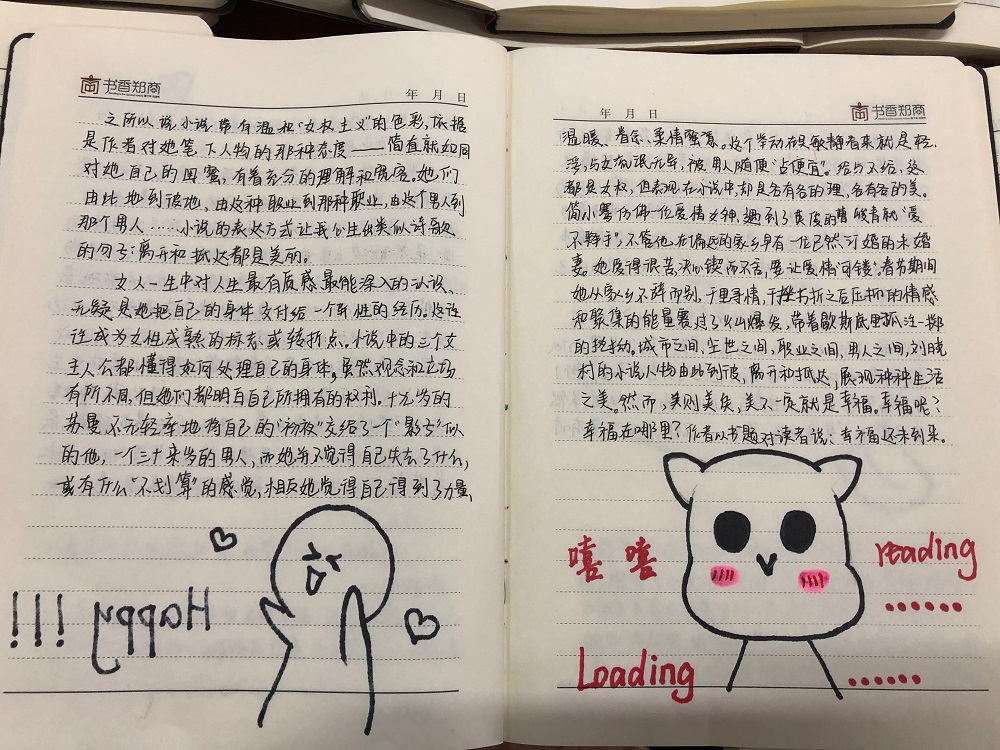 书香郑商
年 月 日
之所以说小说带有温和"女权主义"的色彩,依据
是作者对她笔下人物的那种态度——简直就如同
对她自己的闺蜜,有着充分的理解和宽容。她们
由此地到彼地,由这种职业到那种职业,由这个男人到
那个男人……小说的表达方式让我分生出类似诗歌
的句子:离开和抵达都是美丽。
女人一生中对人生最有质感最能深入的认识,
无疑是她把自己的身体交付给一个异性的经历。这往
往成为女性成熟的标志或转折点。小说中的三个女
主人公都懂得如何处理自己的身体。虽然观念和立场
有所不同,但她们都明白自己所拥有的权利。十九岁的
苏曼不无轻率地将自己的"初夜"交给了一个"影子"似
的他,一个三十来岁的男人,而她并不觉得自己失去了什么,
或有什么"不划算"的感觉,相反她觉得自己得到了力量、
Happy !!!
年 月 日
书香郑商
温暖、眷念、柔情蜜意。这个举动在吴敏静看来就是轻
浮,与女孤张元异,被男人随便"占便宜"。给与不给,这
都是女权,但表现在小说中却是各有各的理、各有各的美。
简小骞仿佛一位爱情女神,遇到了英皮的 就"爱
不释手",不管他在偏远的家乡早有一位已然订婚的未婚
妻。她爱得很苦,决心锲而不舍,要让爱情"问铃"。春节期间
她从家乡不辞而别,千里寻情,千挫百折之后压抑的情感
和聚集的能量赛过了火山爆发,带着歇斯底里孤注一掷
的拯拗。城市之间,尘世之间,职业之间,男人之间,刘晓
村的小说人物由此到彼,离开和抵达,展现种种生活
之美。然而,美则美矣,美不一定就是幸福。幸福呢?
幸福在哪里?作者以书题对读者说:幸福还未到来。
嘻 嘻
reading
......
Loading
......